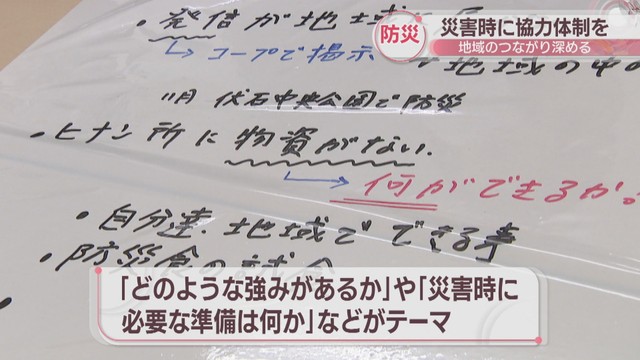 防災
災害時に協力体制を
地域のつながり深める
・発信が地域
→コープで掲示
地域の中の
11月 伏石中央公園で防災
・ヒナン所に物資がない.
→何ができるか?
・自分達 地域でできる事
・防災食の試食
「どのような強みがあるか」や「災害時に
必要な準備は何か」などがテーマ